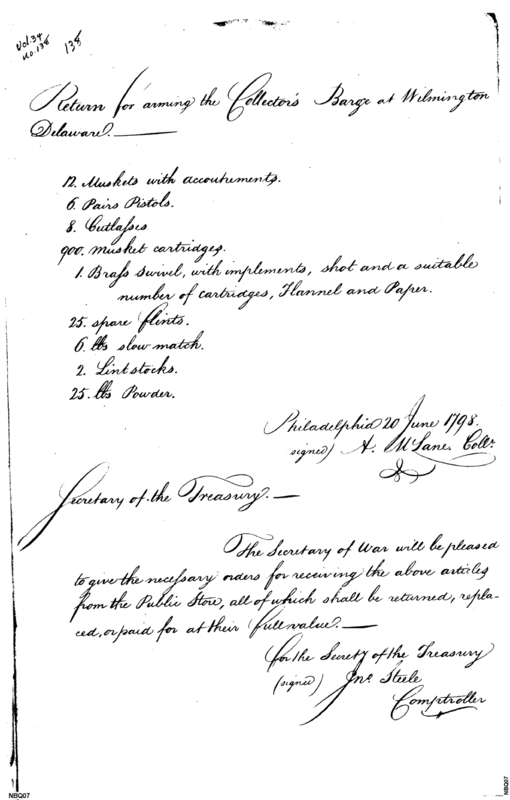 Vol. 34
No. 138
138
Return for arming the Collector's Barge at Wilmington
Delaware. —
12. Muskets with accoutrements.
6. Pairs Pistols.
8. Cutlasses
900. musket cartridges.
1. Brass Swivel, with implements, shot and a suitable
number of cartridges, Flannel and Paper.
25. spare flints.
6. lbs slow match.
2. Lintstocks.
25. lbs Powder.
Philadelphia 20 June 1798.
signed) A. McLane Collr.
Secretary of the Treasury. —
The Secretary of War will be pleased
to give the necessary orders for receiving the above articles
from the Public Store, all of which shall be returned, repla-
ced, or paid for at their full value. —
for the Secrety of the Treasury
(signed) Jno. Steele
Comptroller
NBQ07
NBQ07